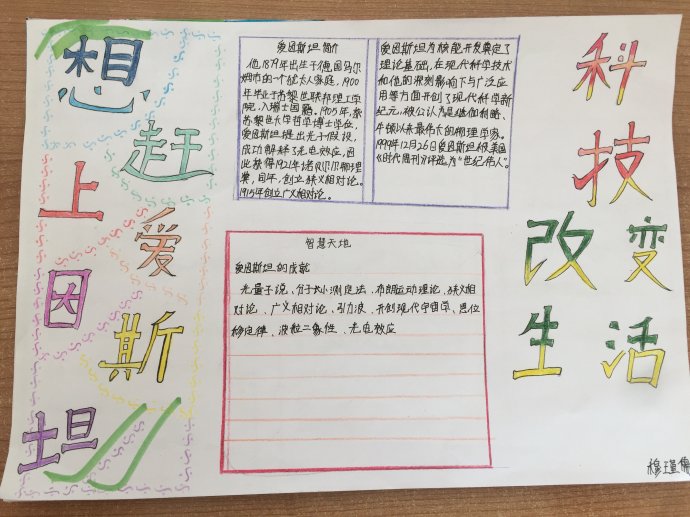 想
赶
上
爱
因
斯
坦
爱因斯坦简介
他1879年出生于德国乌尔
姆市的一个犹太人家庭，1900
年毕业于苏黎世联邦理工学
院，入瑞士国籍。1905年，获
苏黎世大学哲学博士学位，
爱因斯坦提出光子假设，
成功解释了光电效应，因
此获得1921年诺贝尔物理
奖，同年，创立狭义相对论。
1915年创立广义相对论。
爱因斯坦为核能开发奠定了
理论基础，在现代科学技术
和他的深刻影响下与广泛应
用等方面开创了现代科学新
纪元，被公认为是继伽利略、
牛顿以来最伟大的物理学家。
1999年12月26日爱因斯坦被美国
《时代周刊》评选为“世纪伟人”。
智慧天地
爱因斯坦的成就
光量子说、分子大小测定法、布朗运动理论、狭义相
对论、广义相对论、引力波、开创现代宇宙学、思位
移定律、波粒二象性、光电效应
科
技
改变
生活
穆瑾